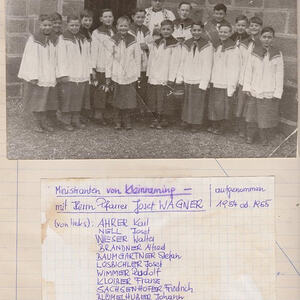 Ministranten von Kleinraming –
mit Herrn Pfarrer Josef WAGNER
aufgenommen
1964 od. 1965
(von links): AHRER Karl
NELL Josef
WESER Walter
BRANDNER Alfred
BAUMGARTNER Stefan
LOSBICHLER Josef
WIMMER Rudolf
KLOIBER Franz
SACHSENHOFER Friedrich
BLÜMELHUBER Johann